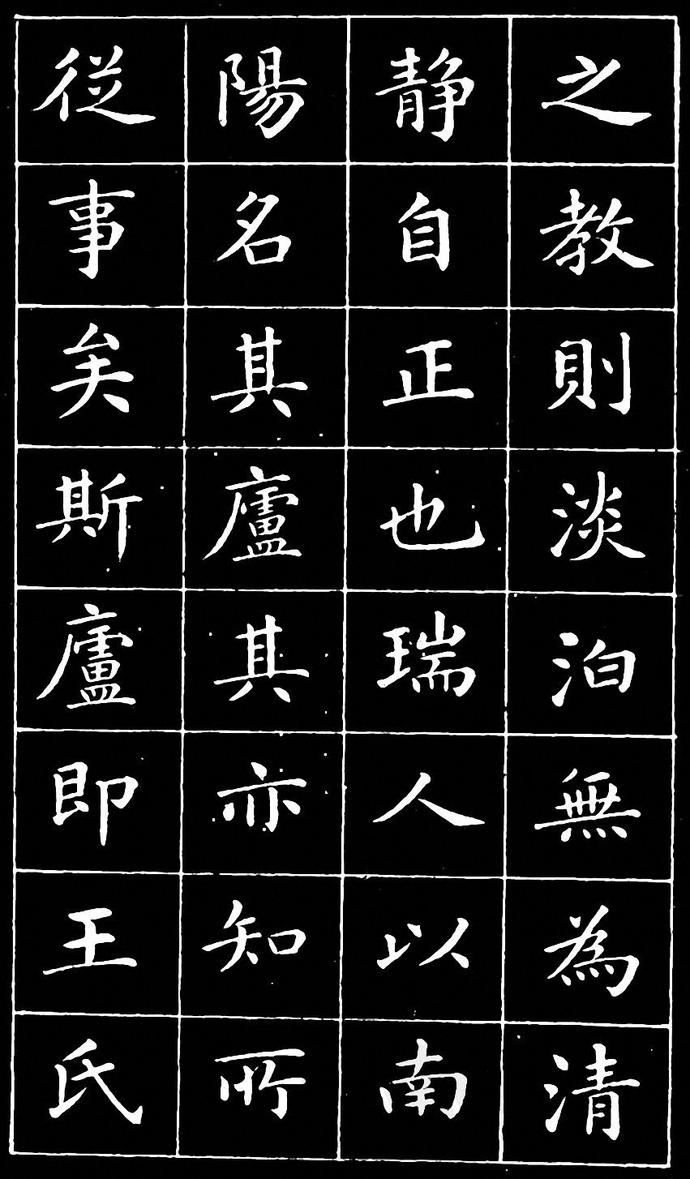 之教則淡泊無為清
静自正也瑞人以南
陽名其廬其亦知所
従事矣斯廬即王氏